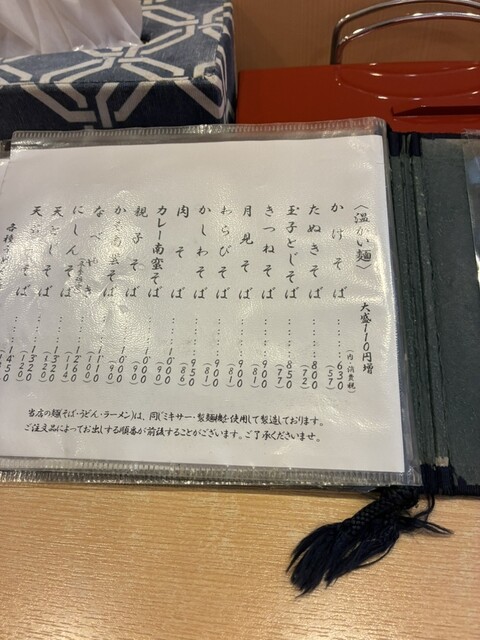 〈温かい麺〉 大盛110円増
(内・消費税)
かけそば ……630 (57)
たぬきそば ……800 (72)
玉子とじそば ……850 (77)
きつねそば ……900 (81)
月見そば ……900 (81)
わらびそば ……900 (81)
かしわそば ……950 (86)
肉そば
カレー南蛮そば ……1000 (90)
親子そば ……1000 (90)
そば
なべやき
にしんそば ……1260 (114)
天とじそば ……1320 (120)
天 そば ……1320 (120)
各種 1450
当店の麺(そば・うどん・ラーメン)は、同じミキサー・製麺機を使用して製造しております。
ご注文品によってお出しする順番が前後することがございます。ご了承くださいませ。